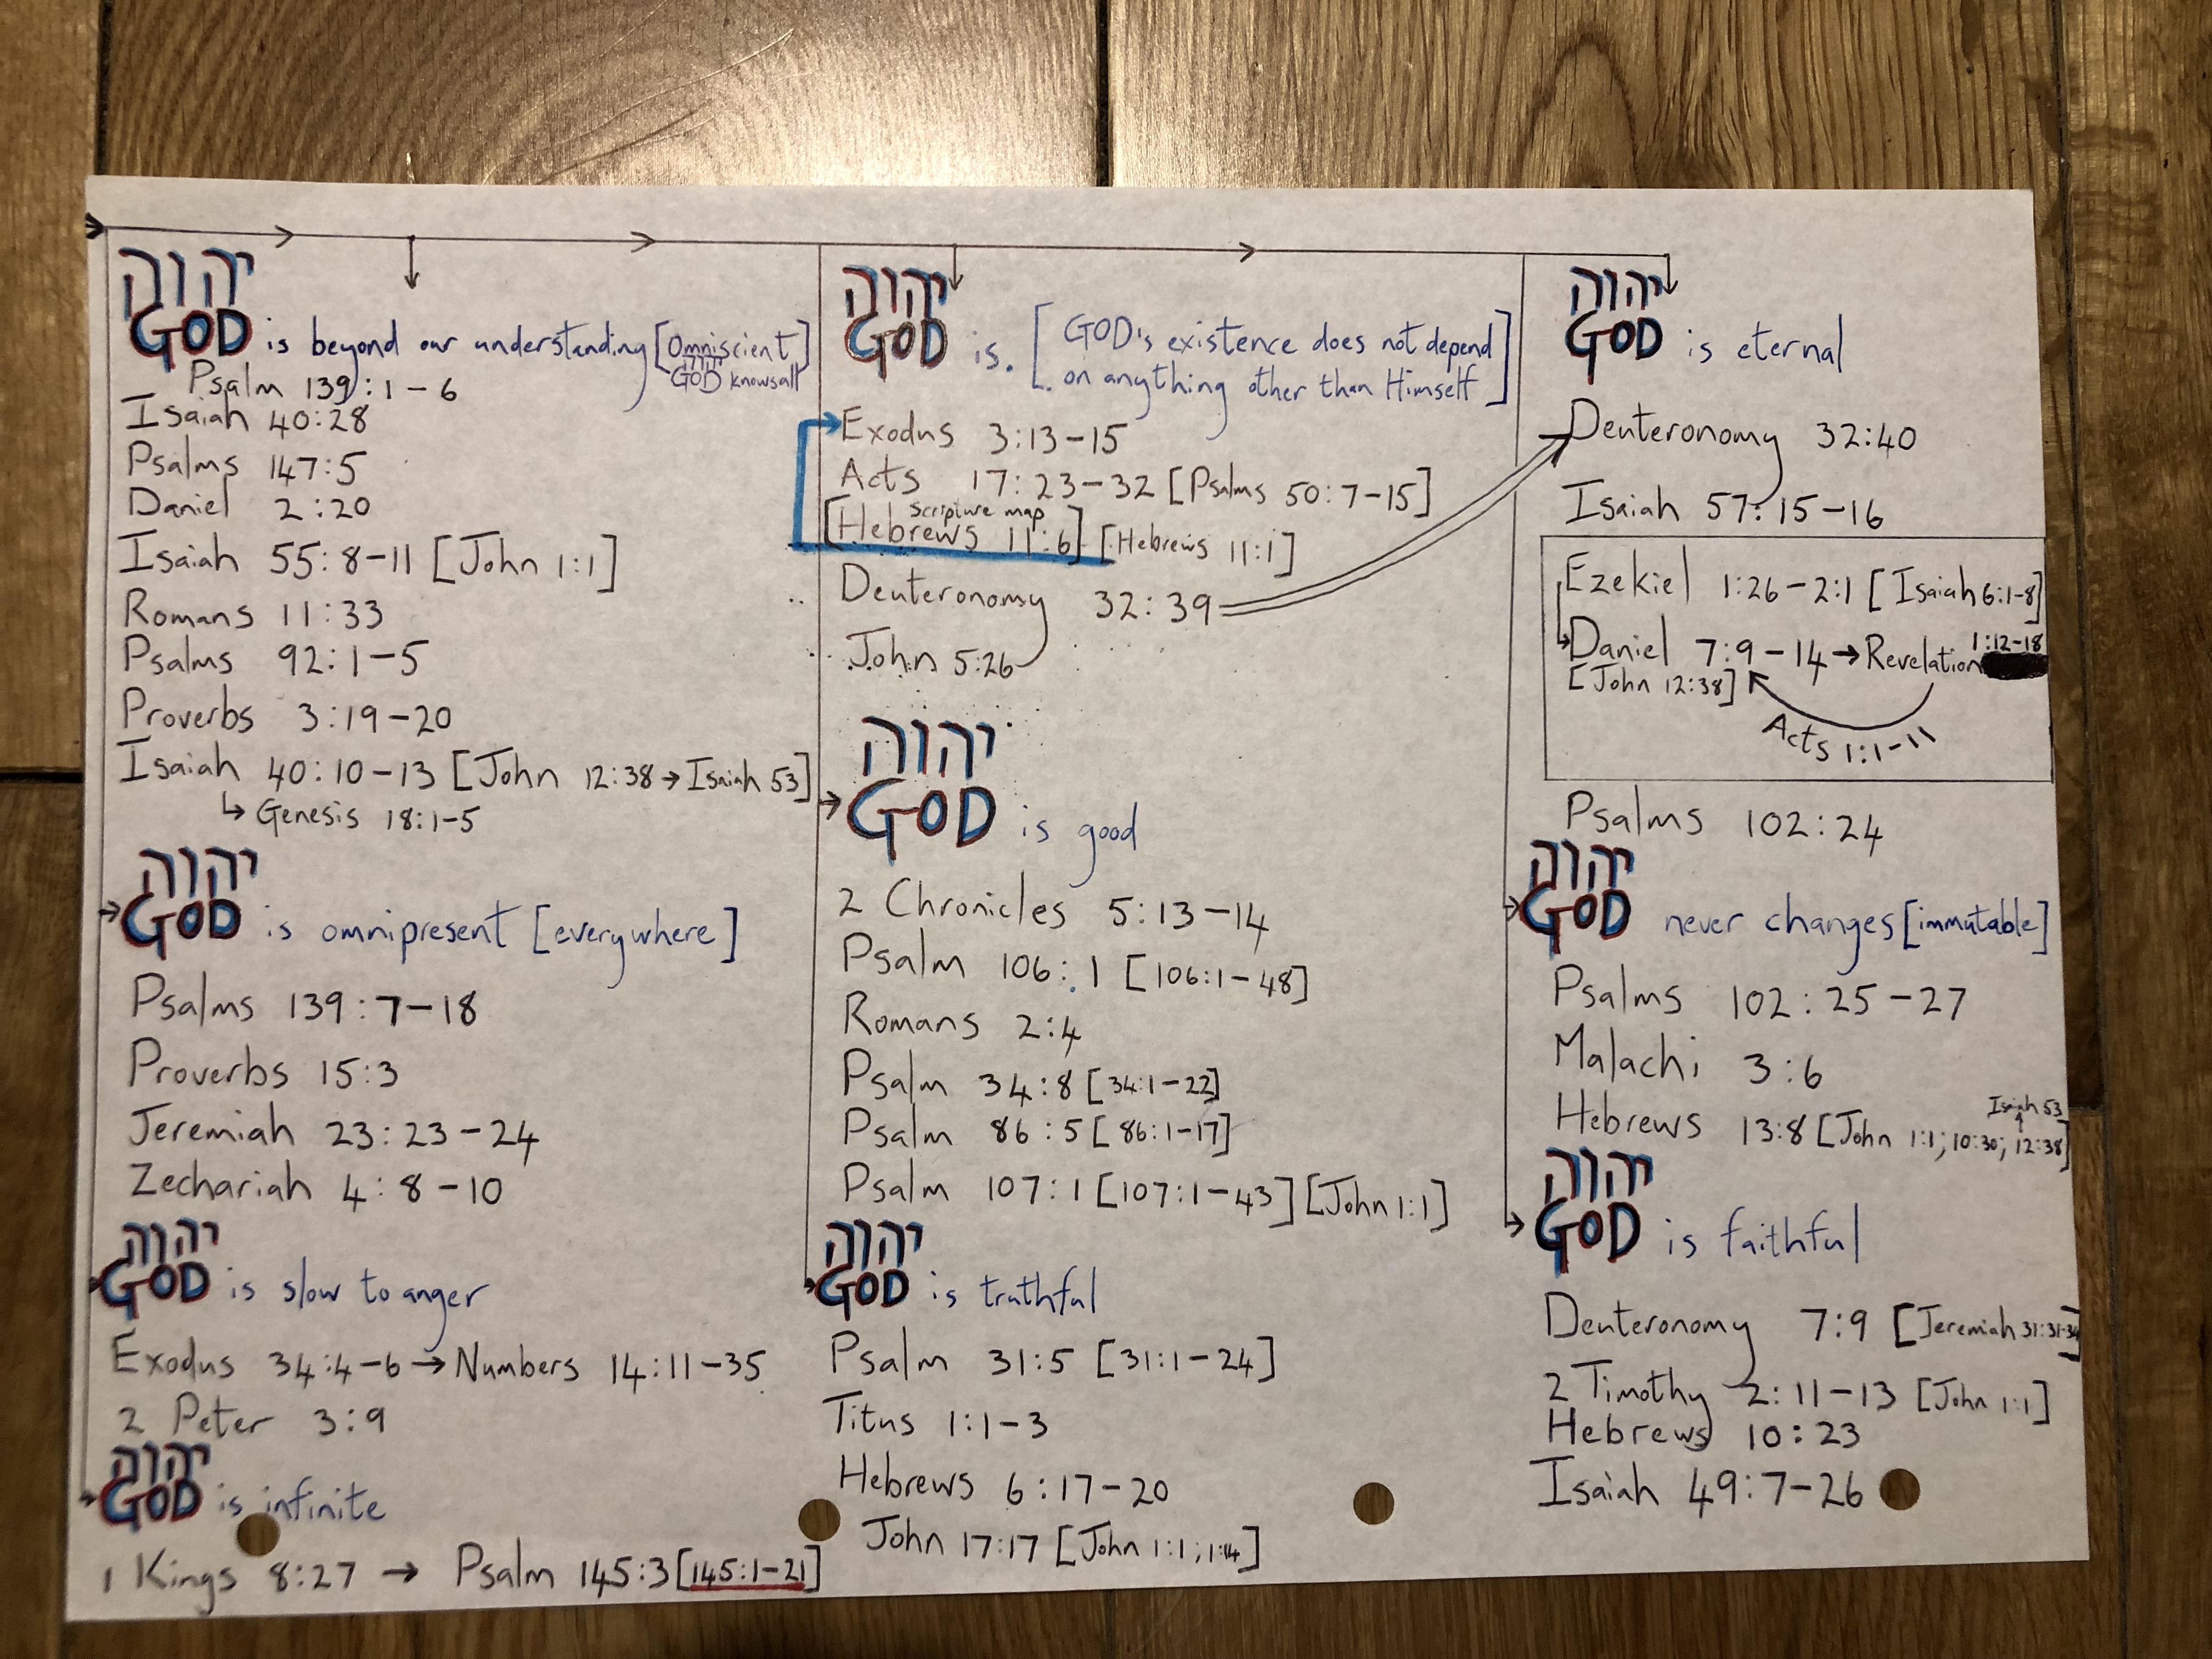 יהוה
GOD is beyond our understanding [Omniscient]
יהוה
GOD knows all
Psalm 139:1-6
Isaiah 40:28
Psalms 147:5
Daniel 2:20
Isaiah 55:8-11 [John 1:1]
Romans 11:33
Psalms 92:1-5
Proverbs 3:19-20
Isaiah 40:10-13 [John 12:38→Isaiah 53]
↳ Genesis 18:1-5
יהוה
GOD is omnipresent [everywhere]
Psalms 139:7-18
Proverbs 15:3
Jeremiah 23:23-24
Zechariah 4:8-10
יהוה
GOD is slow to anger
Exodus 34:4-6 → Numbers 14:11-35
2 Peter 3:9
יהוה
GOD is infinite
1 Kings 8:27 → Psalm 145:3 [145:1-21]
יהוה
GOD is. [GOD's existence does not depend
on anything other than Himself]
Exodus 3:13-15
Acts 17:23-32 [Psalms 50:7-15]
Scripture map
[Hebrews 11:6] [Hebrews 11:1]
Deuteronomy 32:39
John 5:26
יהוה
GOD is good
2 Chronicles 5:13-14
Psalm 106:1 [106:1-48]
Romans 2:4
Psalm 34:8 [34:1-22]
Psalm 86:5 [86:1-17]
Psalm 107:1 [107:1-43] [John 1:1]
יהוה
GOD is truthful
Psalm 31:5 [31:1-24]
Titus 1:1-3
Hebrews 6:17-20
John 17:17 [John 1:1; 1:14]
יהוה
GOD is eternal
Deuteronomy 32:40
Isaiah 57:15-16
Ezekiel 1:26-2:1 [Isaiah 6:1-8]
Daniel 7:9-14 → Revelation 1:12-18
[John 12:38]
Acts 1:1-11
Psalms 102:24
יהוה
GOD never changes [immutable]
Psalms 102:25-27
Malachi 3:6
Isaiah 53
Hebrews 13:8 [John 1:1; 10:30; 12:38]
יהוה
GOD is faithful
Deuteronomy 7:9 [Jeremiah 31:31-34]
2 Timothy 2:11-13 [John 1:1]
Hebrews 10:23
Isaiah 49:7-26